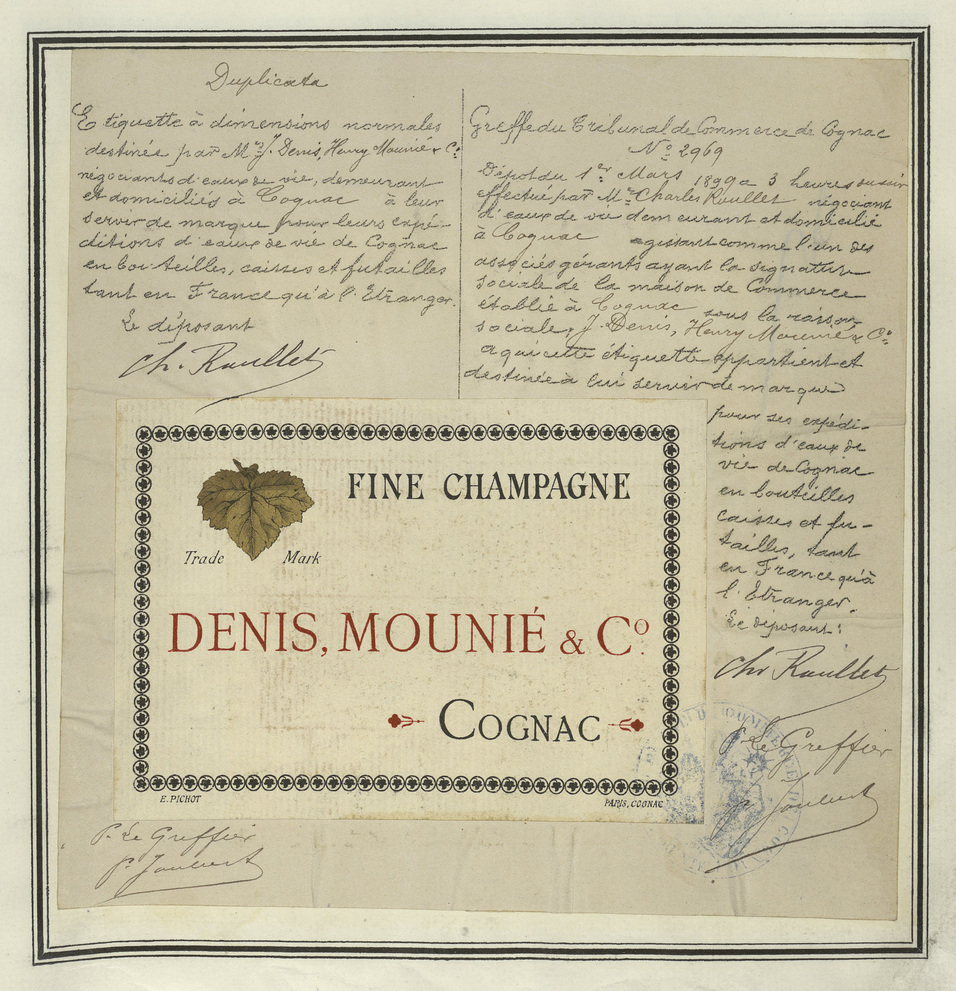 Duplicata
Etiquette à dimensions normales
destinée par Mrs J. Denis, Henry Mounié & Co
négociants d'eaux de vie, demeurant
et domiciliés à Cognac à leur
servir de marque pour leurs expé-
ditions d'eaux de vie de Cognac
en bouteilles, caisses et futailles
tant en France qu'à l'Etranger.
Le déposant
Ch. Roullet
Greffe du Tribunal de Commerce de Cognac
No 2969
Dépôt du 1er Mars 1899 a 3 heures du soir
effectué par Mr Charles Roullet négociant
d'eaux de vie demeurant et domicilié
à Cognac agissant comme l'un des
associés gérants ayant la signature
sociale de la maison de Commerce
établie à Cognac sous la raison
sociale, J. Denis, Henry Mounié & Co
a qui cette étiquette appartient et
destinée à lui servir de marque
pour ses expédi-
tions d'eaux de
vie de Cognac
en bouteilles
caisses et fu-
tailles, tant
en France qu'à
l'Etranger.
Le déposant:
Ch Roullet
P. Le Greffier
FINE CHAMPAGNE
Trade Mark
DENIS, MOUNIÉ & Co.
COGNAC
E. PICHOT
PARIS, COGNAC
P. Le Greffier